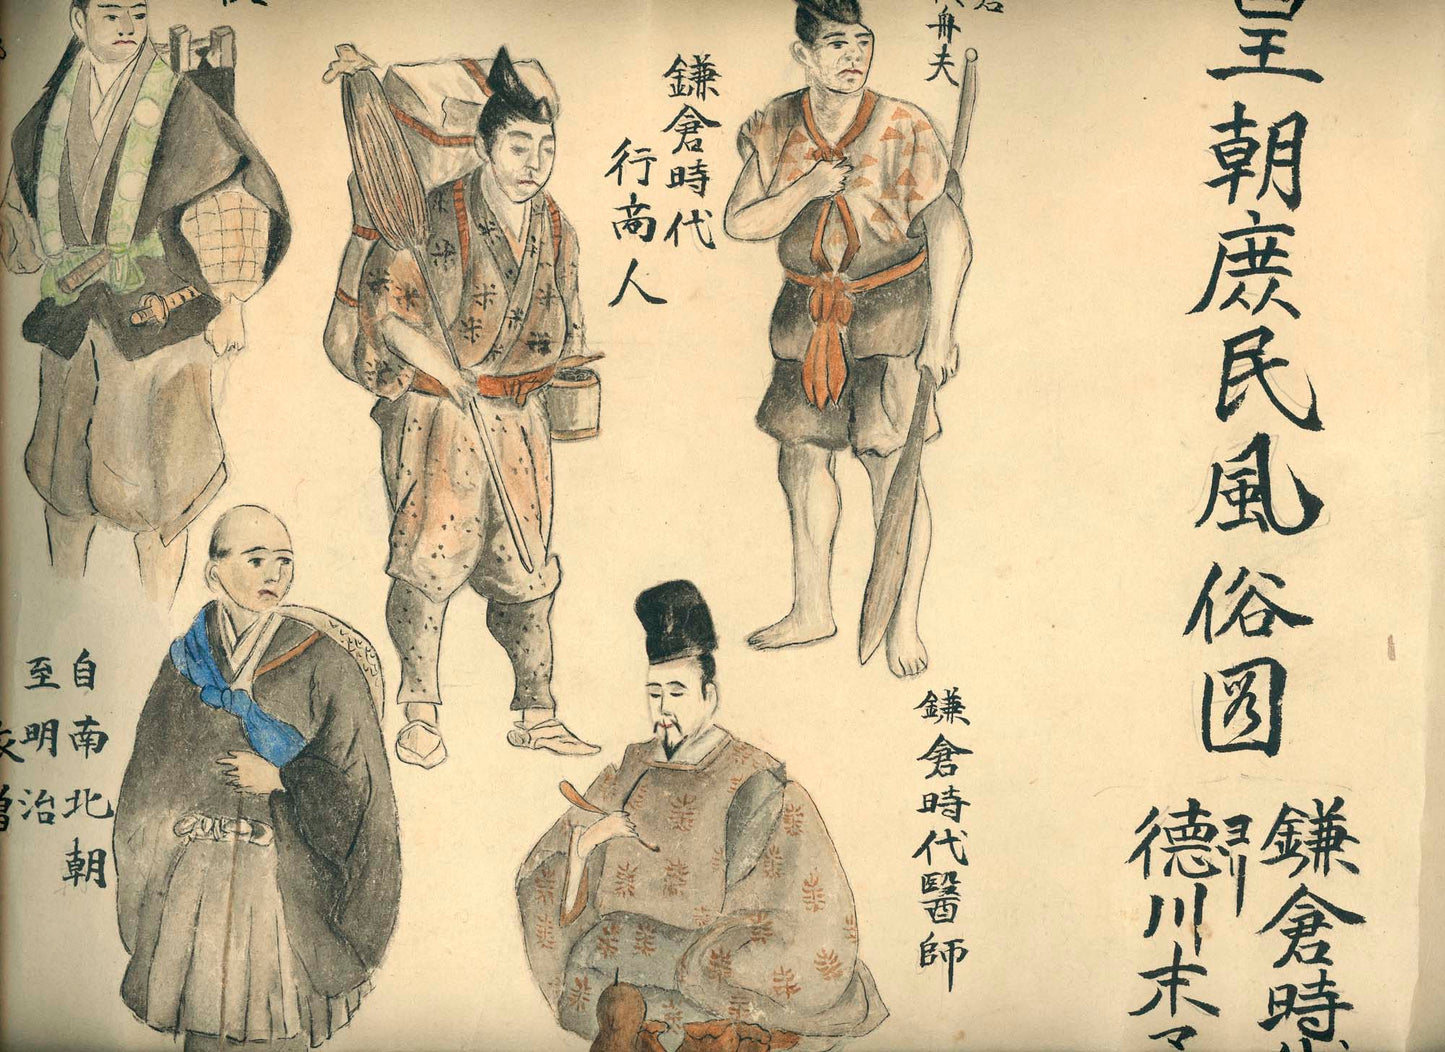 皇朝庶民風俗図
鎌倉時代
ヨリ
徳川末マ
舟夫
鎌倉時代
行商人
鎌倉時代醫師
自南北朝
至明治
僧